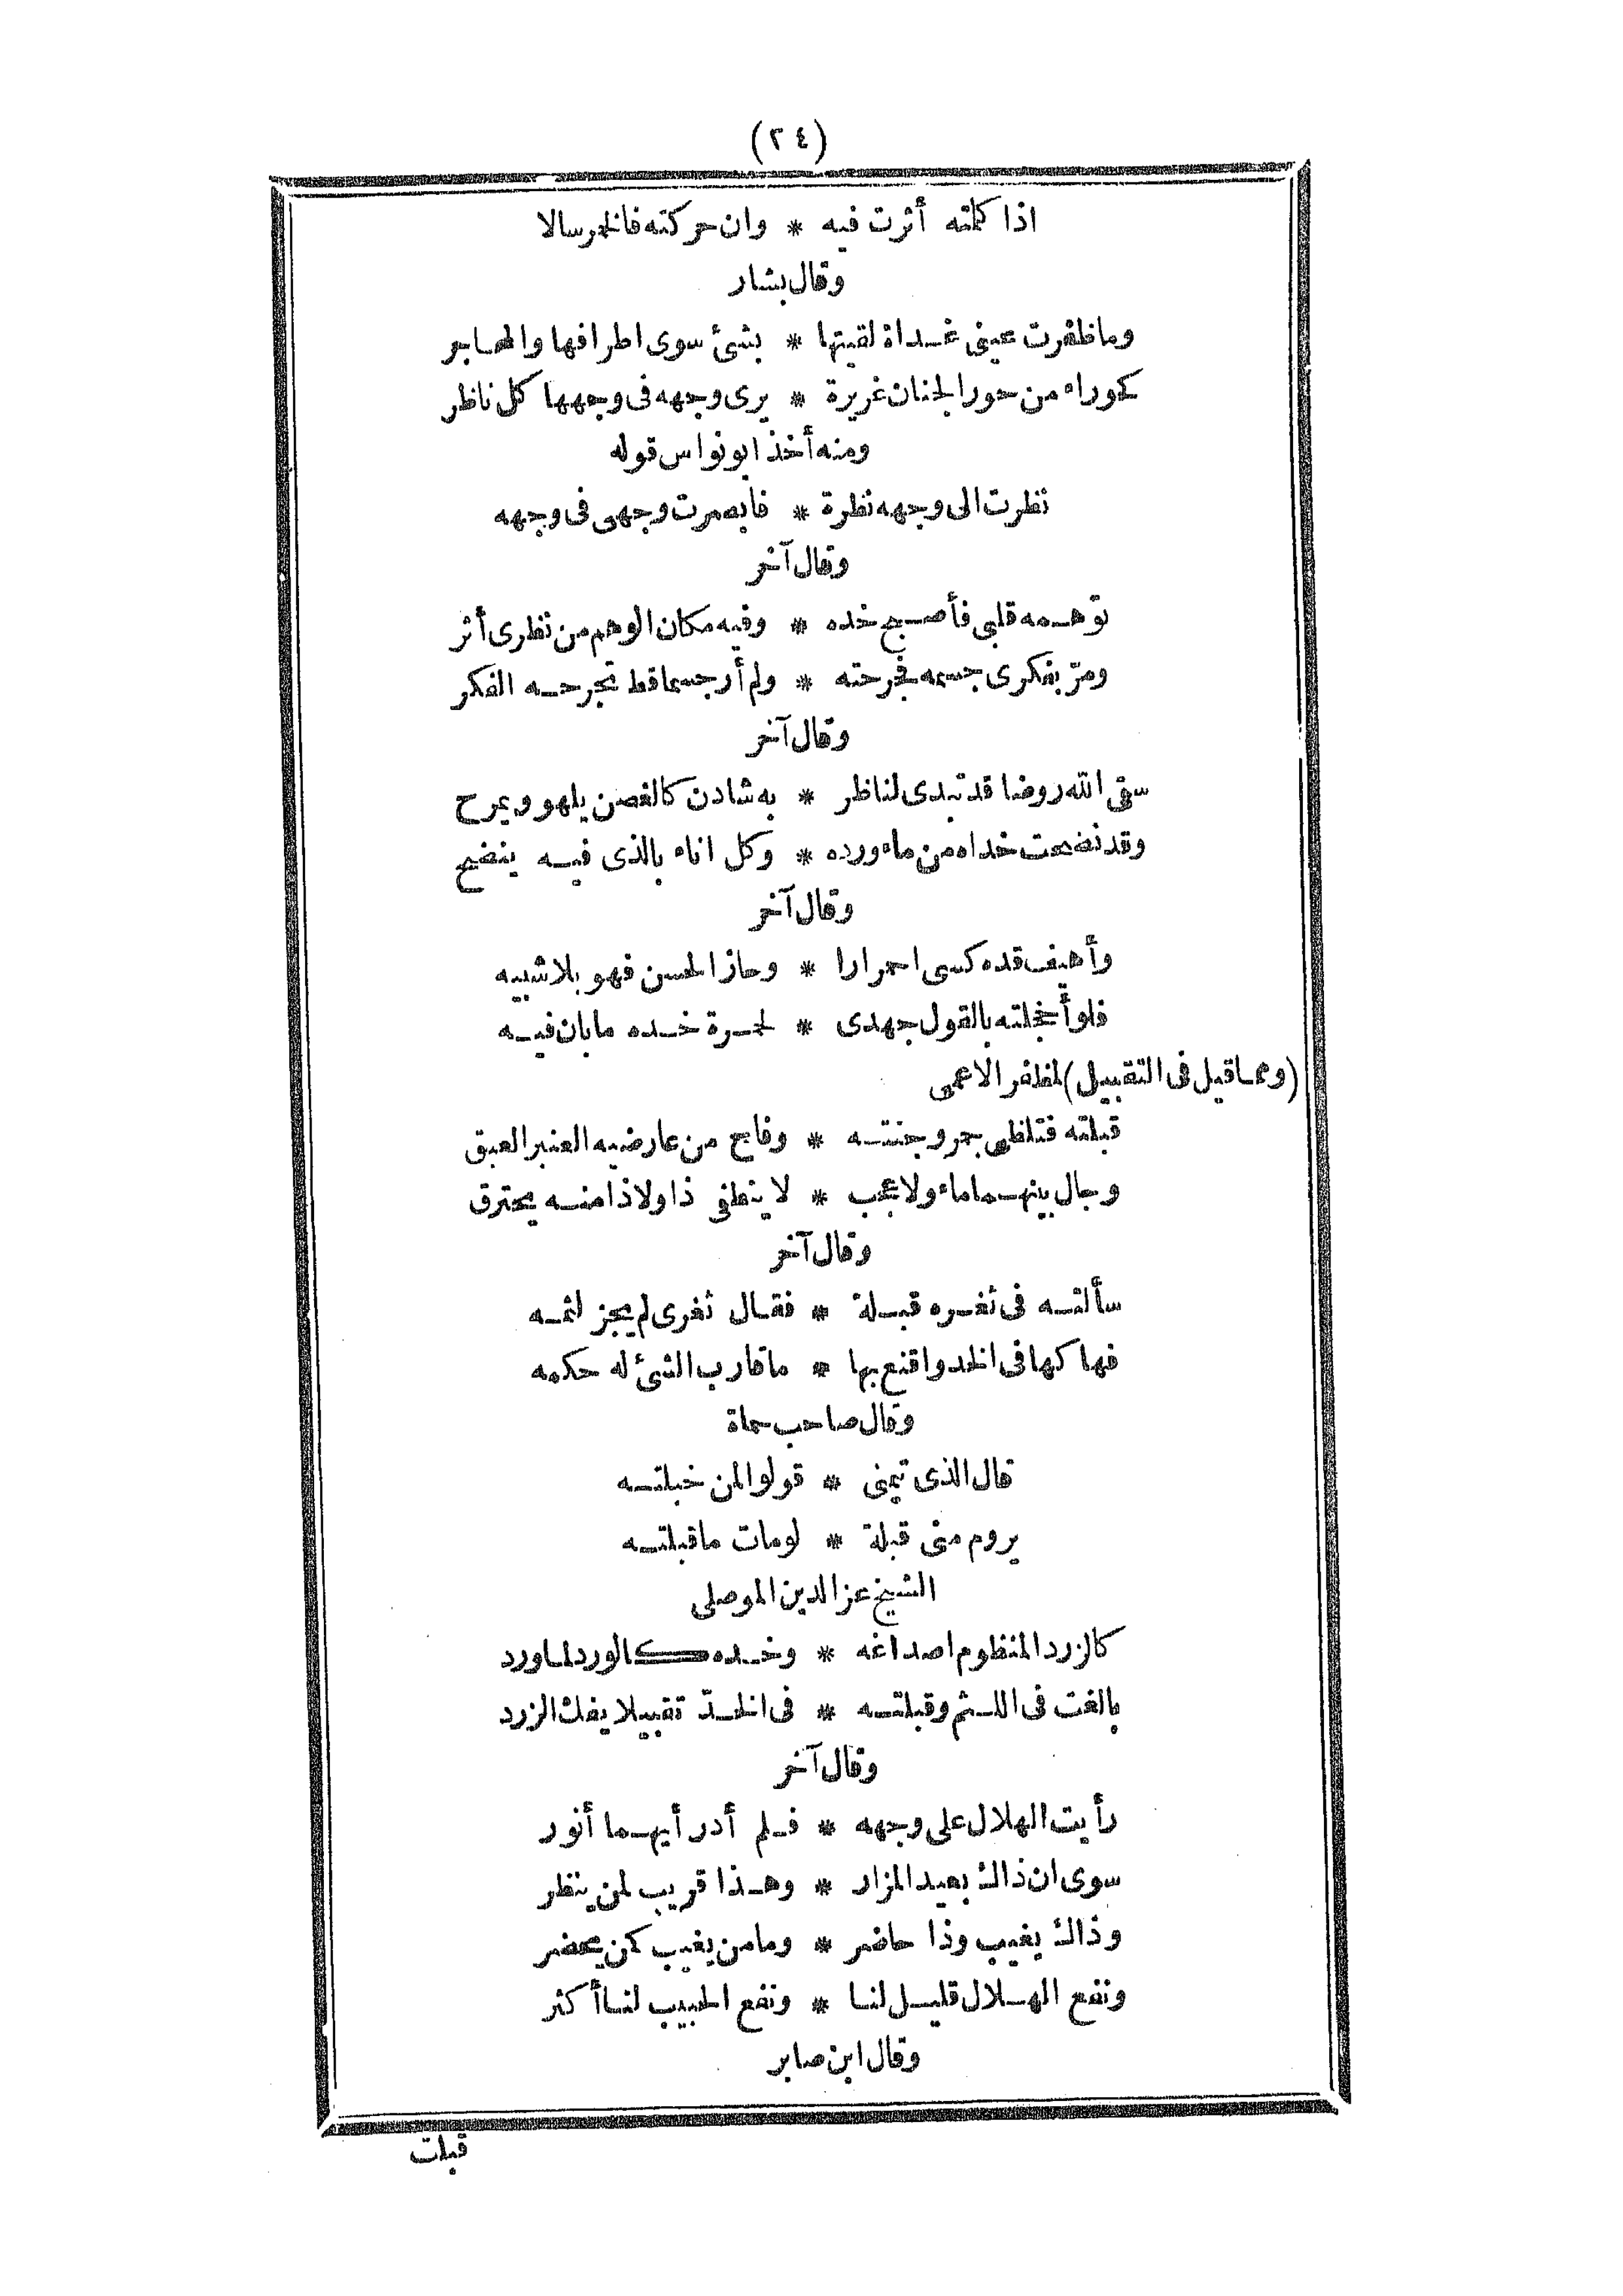 (٢٤)
اذا كلمته أثرت فيه * وان حركته فالخمر سالا
وقال بشار
وما ظفرت عينى غداة لقيتها * بشئ سوى اطرافها والمحاجر
كحوراء من حور الجنان غريرة * يرى وجهه فى وجهها كل ناظر
ومنه أخذ ابو نواس قوله
نظرت الى وجهه نظرة * فابصرت وجهى فى وجهه
وقال آخر
توّهمه قلبى فأصبح خده * وفيه مكان الوهم من نظرى أثر
ومرّ بفكرى جسمه فجرحته * ولم أر جسما قط تجرحه الفكر
وقال آخر
سقى الله روضا قد تبدى لناظر * به شادن كالغصن يلهو ويمرح
وقد نضحت خداه من ماء ورده * وكل اناء بالذى فيه ينضح
وقال آخر
وأهيف قده كسى احمرارا * وحاز الحسن فهو بلا شبيه
فلو أخجلته بالقول جهدى * لحمرة خده ما بان فيه
(ومما قيل فى التقبيل) لمظفر الاعمى
قبلته فتلظى جمر وجنته * وفاح من عارضيه العنبر العبق
وجال بينهما ماء ولا عجب * لا ينطفى ذا ولا ذا منه يحترق
وقال آخر
سألته فى ثغره قبلة * فقال ثغرى لم يجز لثمه
فهاكها فى الخد واقنع بها * ما قارب الشئ له حكمه
وقال صاحب حماة
قال الذى تيمنى * قولوا لمن خبلته
يروم منى قبلة * لو مات ما قبلته
الشيخ عز الدين الموصلى
كالزرد المنظوم اصداغه * وخده كالورد لما ورد
بالغت فى اللثم وقبلته * فى الخدّ تقبيلا يفك الزرد
وقال آخر
رأيت الهلال على وجهه * فلم أدر أيهما أنور
سوى ان ذاك بعيد المزار * وهذا قريب لمن ينظر
وذاك يغيب وذا حاضر * وما من يغيب كمن يحضر
ونفع الهلال قليل لنا * ونفع الحبيب لنا أكثر
وقال ابن صابر
قبلت